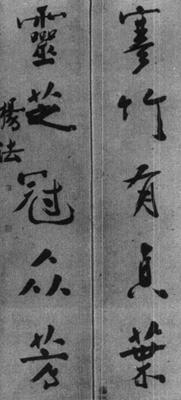 寒竹有真葉
靈芝冠众芳
楊法